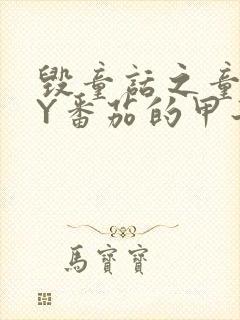 毁童话之童
Y番茄的甲
馬寶寶